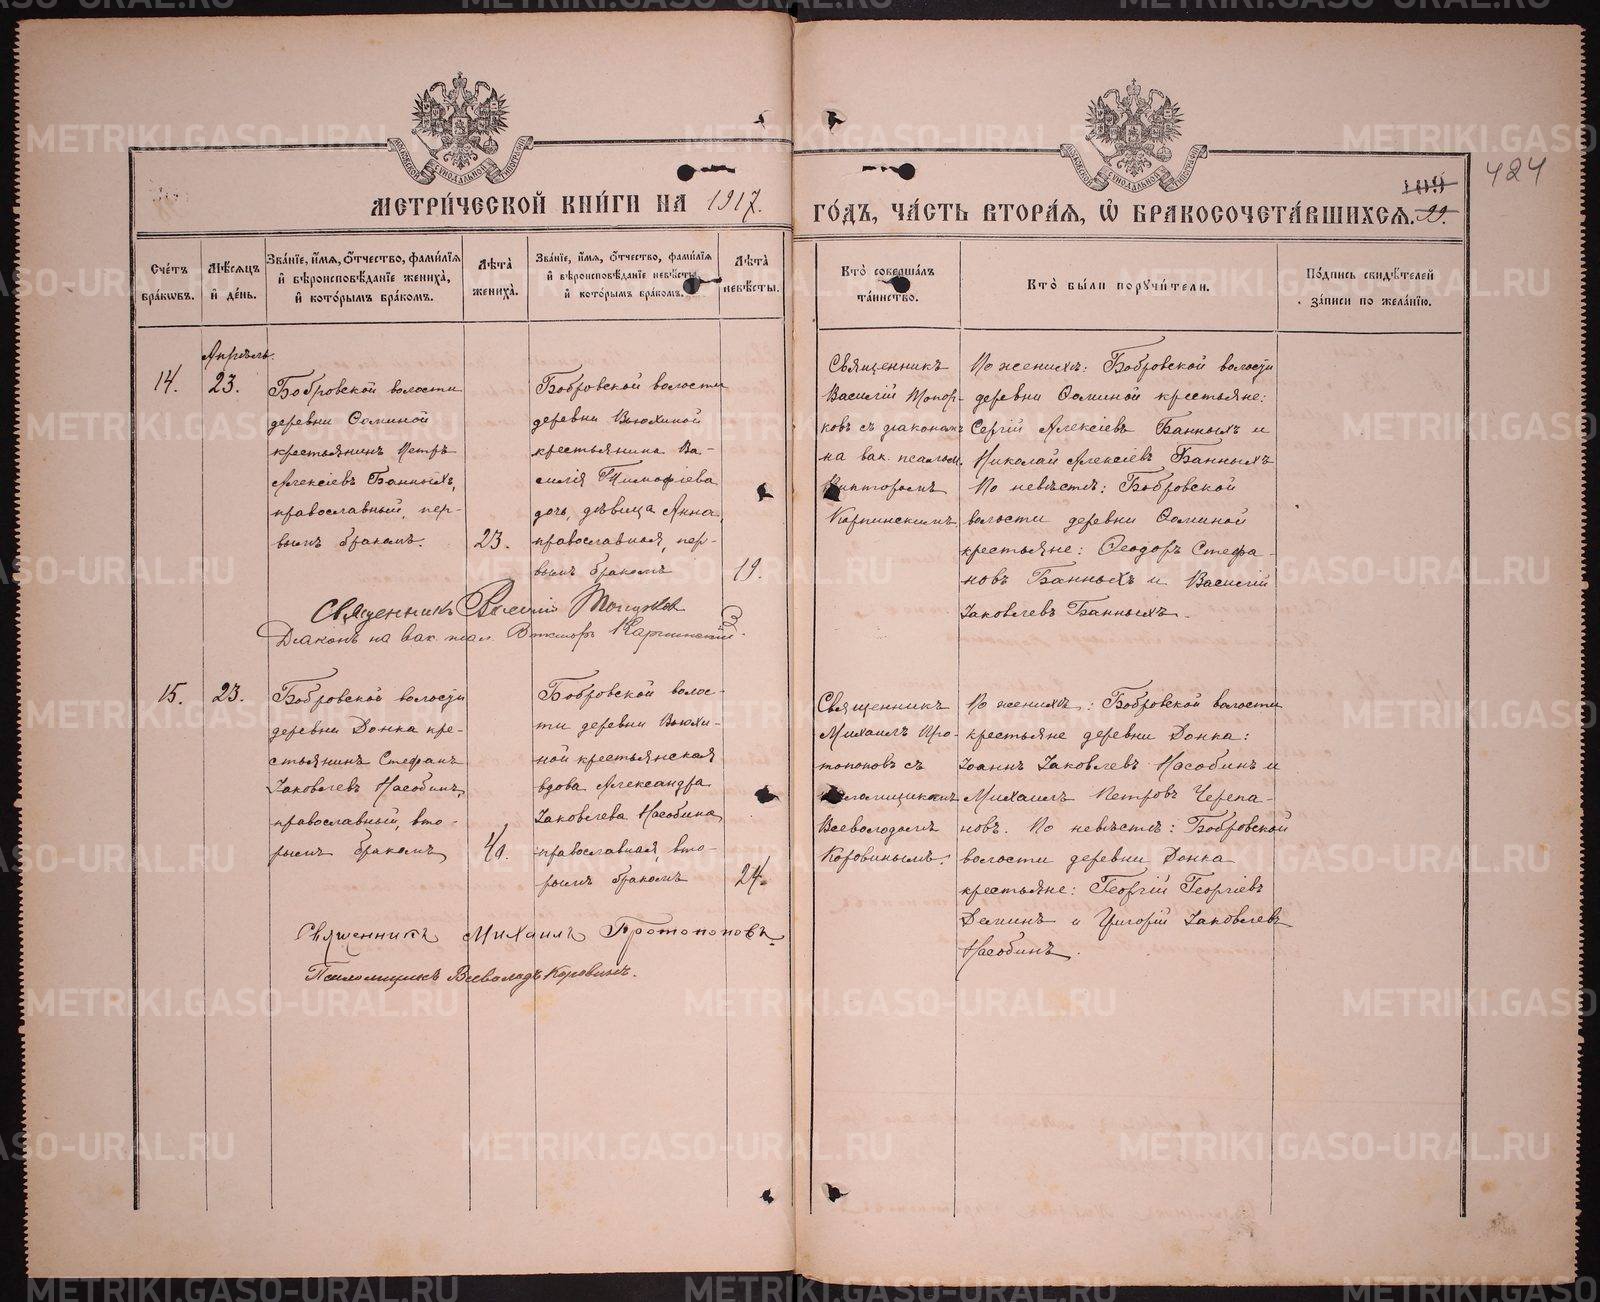 МЕТРИ́ЧЕСКОЙ КНИ́ГИ НА 1917.
ГО́ДЪ, ЧА́СТЬ ВТОРА́Я, Ѡ҆ БРАКОСОЧЕТА́ВШИХСЯ.
109
99.
424
Сче́тъ бра́кѡвъ.
Мѣ́сяцъ и҆ де́нь.
Зва́нїе, и҆́мя, ѻ҆́тчество, фамилїя и҆ вѣроисповѣ́данїе жениха̀, и҆ кото́рымъ бра́комъ.
Лѣ́та жениха̀.
Зва́нїе, и҆́мя, ѻ҆́тчество, фамилїя и҆ вѣроисповѣ́данїе невѣ́сты, и҆ кото́рымъ бра́комъ.
Лѣ́та невѣ́сты.
Кто̀ соверша́лъ та́инство.
Кто̀ бы́ли порꙋчи́тели.
По́дпись свидѣ́телей за́писи по жела́нїю.
14.
Апрѣль.
23.
Бобровской волости
деревни Ѳоминой
крестьянинъ Петръ
Алексіевъ Банныхъ,
православный, пер-
вымъ бракомъ.
23.
Бобровской волости
деревни Вьюхиной
крестьянина Ва-
силія Тимофіева
дочь, дѣвица Анна,
православная, пер-
вымъ бракомъ
19.
Священникъ
Василій Топор-
ковъ съ діакономъ
на вак. псалом.
Викторомъ
Карпинскимъ
По женихѣ: Бобровской волости
деревни Ѳоминой крестьяне:
Сергій Алексіевъ Банныхъ и
Николай Алексіевъ Банныхъ
По невѣстѣ: Бобровской
волости деревни Ѳоминой
крестьяне: Ѳеодоръ Стефа-
новъ Банныхъ и Василій
Іаковлевъ Банныхъ.
Священникъ Василій Топорков
Діаконъ на вак. псал. Викторъ Карпинскій.
15.
23.
Бобровской волости
деревни Донка кре-
стьянинъ Стефанъ
Іаковлевъ Насобинъ,
православный, вто-
рымъ бракомъ
40.
Бобровской волос-
ти деревни Вьюхи-
ной крестьянская
вдова Александра
Іаковлева Насобина,
православная, вто-
рымъ бракомъ
24.
Священникъ
Михаилъ Про-
топоповъ съ
псаломщикомъ
Всеволодомъ
Коровинымъ.
По женихѣ: Бобровской волости
крестьяне деревни Донка:
Іоаннъ Іаковлевъ Насобинъ и
Михаилъ Петровъ Черепа-
новъ. По невѣстѣ: Бобровской
волости деревни Донка
крестьяне: Георгій Георгіевъ
Деминъ и Григорій Іаковлевъ
Насобинъ.
Священникъ Михаилъ Протопоповъ.
Псаломщикъ Всеволодъ Коровинъ.
METRIKI.GASO-URAL.RU